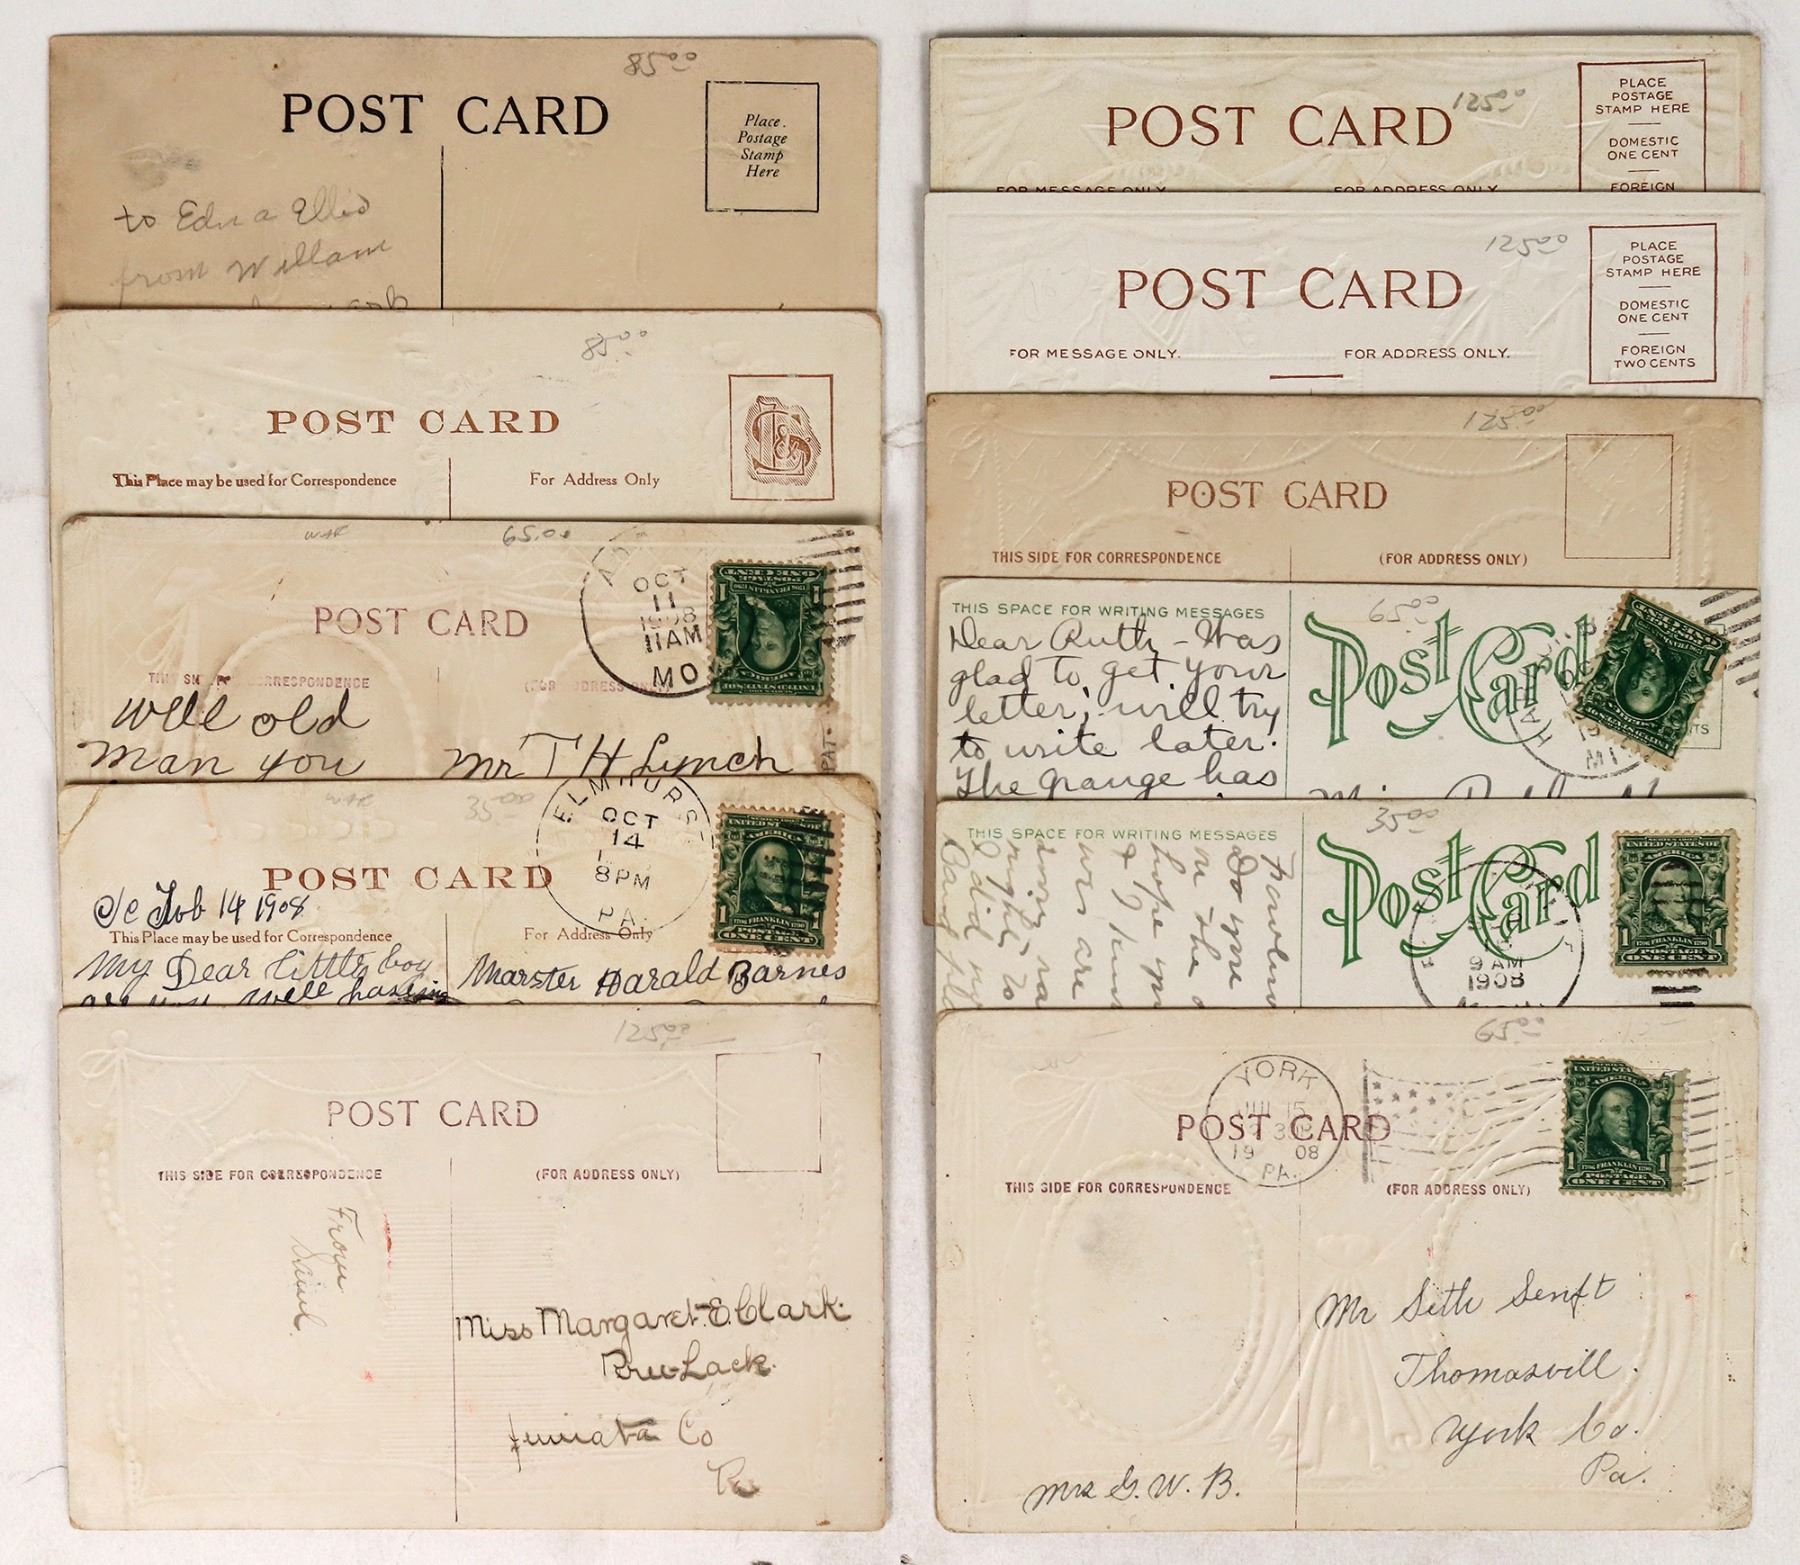 85.00
POST CARD
Place.
Postage
Stamp
Here
to Edna Ellis
from Willam
85.00
POST CARD
This Place may be used for Correspondence
For Address Only
65.00
OCT
11
1908
11AM
MO
POST CARD
well old
man you
Mr T H Lynch
35.00
ELMHURS
OCT
14
8PM
PA.
UNITED STATES OF
AMERICA
1706 FRANKLIN 1790
POSTAGE
1 ONE CENT 1
POST CARD
14 1908
This Place may be used for Correspondence
For Address Only
My Dear little boy
are you well
Marster Harald Barnes
125.00
POST CARD
THIS SIDE FOR CORRESPONDENCE
(FOR ADDRESS ONLY)
From
Miss Margaret. E. Clark.
Lack.
Juniata Co
Pa
125.00
POST CARD
PLACE
POSTAGE
STAMP HERE
DOMESTIC
ONE CENT
FOREIGN
FOR MESSAGE ONLY
FOR ADDRESS ONLY
125.00
POST CARD
PLACE
POSTAGE
STAMP HERE
DOMESTIC
ONE CENT
FOREIGN
TWO CENTS
FOR MESSAGE ONLY.
FOR ADDRESS ONLY.
125.00
POST CARD
THIS SIDE FOR CORRESPONDENCE
(FOR ADDRESS ONLY)
THIS SPACE FOR WRITING MESSAGES
65.00
Post Card
Dear Ruth - Was
glad to get your
letter, will try
to write later.
The grange has
THIS SPACE FOR WRITING MESSAGES
35.00
Post Card
9 AM
1908
UNITED STATES OF
AMERICA
1706 FRANKLIN 1790
POSTAGE
1 ONE CENT 1
65.00
YORK
JUL 15
19 08
PA.
POST CARD
THIS SIDE FOR CORRESPONDENCE
(FOR ADDRESS ONLY)
AMERICA
1706 FRANKLIN 1790
POSTAGE
1 ONE CENT 1
Mr Seth Senft
Thomasvill.
York Co.
Pa.
Mrs G. W. B.